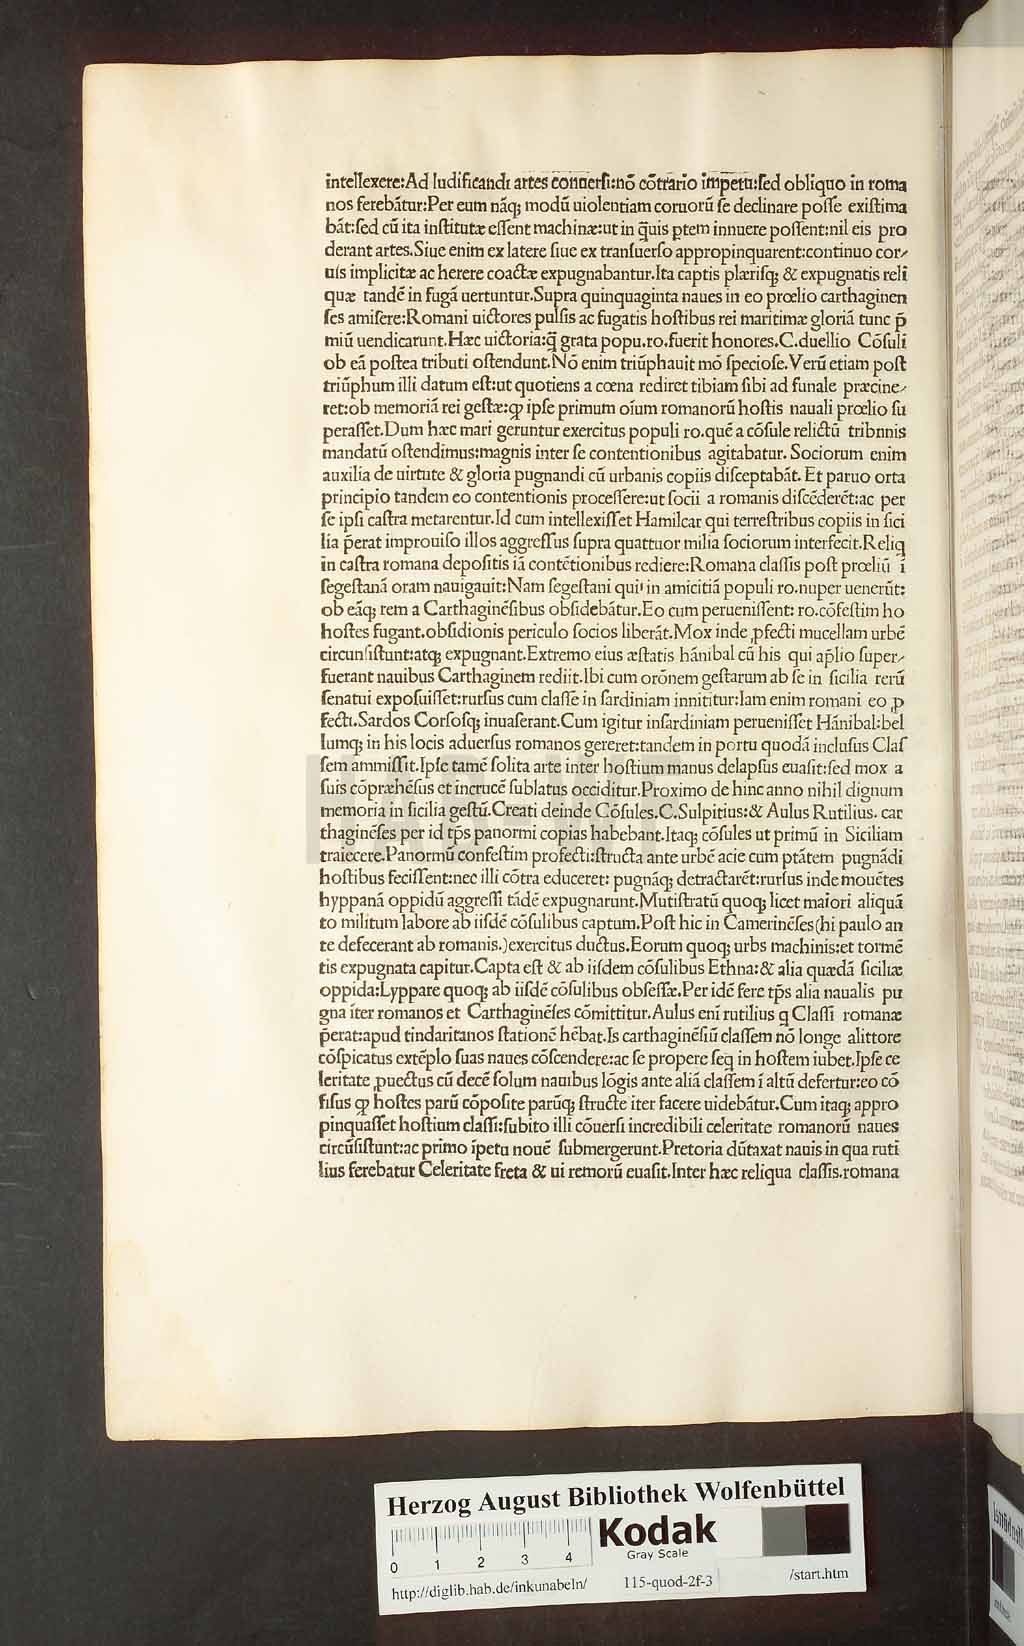 intellexere:Ad ludificandi artes conuersi:nō cōtrario impetu:sed obliquo in roma
nos ferebātur:Per eum nāq; modū uiolentiam coruorū se declinare posse existima
bāt:sed cū ita institutæ essent machinæ:ut in q̄uis ptem innuere possent:nil eis pro
derant artes.Siue enim ex latere siue ex transuerso appropinquarent:continuo cor-
uis implicitæ ac herere coactæ expugnabantur.Ita captis plærisq; & expugnatis reli
quæ tandē in fugā uertuntur.Supra quinquaginta naues in eo prœlio carthaginen
ses amisere:Romani uictores pulsis ac fugatis hostibus rei maritimæ gloriā tunc p̄
miū uendicarunt.Hæc uictoria:q̄ grata popu.ro.fuerit honores.C.duellio Cōsuli
ob eā postea tributi ostendunt.Nō enim triūphauit mō speciose.Verū etiam post
triūphum illi datum est:ut quotiens a cœna rediret tibiam sibi ad funale præcine-
ret:ob memoriā rei gestæ:ꝙ ipse primum oīum romanorū hostis nauali prœlio su
perasset.Dum hæc mari geruntur exercitus populi ro.quē a cōsule relictū tribnnis
mandatū ostendimus:magnis inter se contentionibus agitabatur. Sociorum enim
auxilia de uirtute & gloria pugnandi cū urbanis copiis disceptabāt. Et paruo orta
principio tandem eo contentionis processere:ut socii a romanis discēderēt:ac per
se ipsi castra metarentur.Id cum intellexisset Hamilcar qui terrestribus copiis in sici
lia p̄erat improuiso illos aggressus supra quattuor milia sociorum interfecit.Reliq
in castra romana depositis iā contētionibus rediere:Romana classis post prœliū ī
segestanā oram nauigauit:Nam segestani qui in amicitiā populi ro.nuper uenerūt:
ob eāq; rem a Carthaginēsibus obsidebātur.Eo cum peruenissent: ro.cōfestim ho
hostes fugant.obsidionis periculo socios liberāt.Mox inde ꝓfecti mucellam urbē
circunsistunt:atq; expugnant.Extremo eius æstatis hānibal cū his qui ap̄lio super-
fuerant nauibus Carthaginem rediit.Ibi cum orōnem gestarum ab se in sicilia rerū
senatui exposuisset:rursus cum classe in sardiniam innititur:Iam enim romani eo ꝓ
fecti.Sardos Corsosq; inuaserant.Cum igitur insardiniam peruenisset Hānibal:bel
lumq; in his locis aduersus romanos gereret:tandem in portu quodā inclusus Clas
sem ammissit.Ipse tamē solita arte inter hostium manus delapsus euasit:sed mox a
suis cōpræhēsus et incrucē sublatus occiditur.Proximo de hinc anno nihil dignum
memoria in sicilia gestū.Creati deinde Cōsules.C.Sulpitius:& Aulus Rutilius. car
thaginēses per id tp̄s panormi copias habebant.Itaq; cōsules ut primū in Siciliam
traiecere.Panormū confestim profecti:structa ante urbē acie cum ptātem pugnādi
hostibus fecissent:nec illi cōtra educeret: pugnāq; detractarēt:rursus inde mouētes
hyppanā oppidū aggressi tādē expugnarunt.Mutistratū quoq; licet maiori aliquā
to militum labore ab iisdē cōsulibus captum.Post hic in Camerinēses(hi paulo an
te defecerant ab romanis.)exercitus ductus.Eorum quoq; urbs machinis:et tormē
tis expugnata capitur.Capta est & ab iisdem cōsulibus Ethna:& alia quædā siciliæ
oppida:Lyppare quoq; ab iisdē cōsulibus obsessæ.Per idē fere tp̄s alia naualis pu
gna īter romanos et Carthaginēses cōmittitur.Aulus enī rutilius q Classi romanæ
p̄erat:apud tindaritanos stationē hēbat.Is carthaginēsiū classem nō longe alittore
cōspicatus extēplo suas naues cōscendere:ac se propere seq in hostem iubet.Ipse ce
leritate ꝓuectus cū decē solum nauibus lōgis ante aliā classem ī altū defertur:eo cō
fisus ꝙ hostes parū cōposite parūq; structe iter facere uidebātur.Cum itaq; appro
pinquasset hostium classi:subito illi cōuersi incredibili celeritate romanorū naues
circūsistunt:ac primo īpetu nouē submergerunt.Pretoria dūtaxat nauis in qua ruti
lius ferebatur Celeritate freta & ui remorū euasit.Inter hæc reliqua classis.romana
HAB-WF
Herzog August Bibliothek Wolfenbüttel
0 1 2 3 4
Kodak
Gray Scale
http://diglib.hab.de/inkunabeln/ 115-quod-2f-3 /start.htm